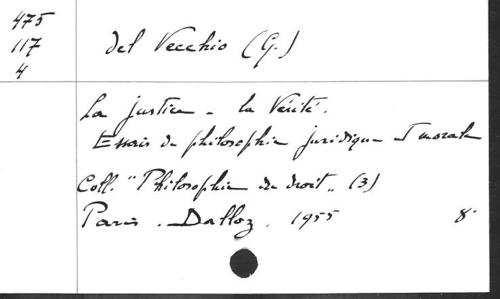 475
117
4
del Vecchio (G.)
La justice - la Vérité.
Essais de philosophie juridique et morale
Coll. "Philosophie du droit" (3)
Paris. Dalloz. 1955 8°